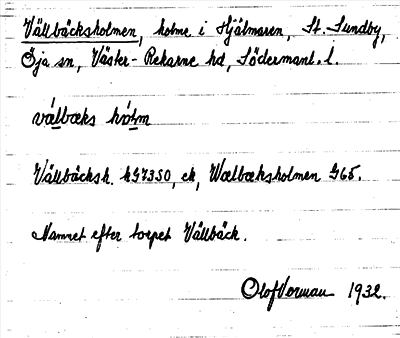 Vällbäcksholmen, holme i Hjälmaren, St. Sundby,
Öja sn, Väster-Rekarne hd, Södermanl. l.
válbæks hòlm
Vällbäcksh. kG7350, ek, Wælbæksholmen G65.
Namnet efter torpet Vällbäck.
Olof Vorman 1932.